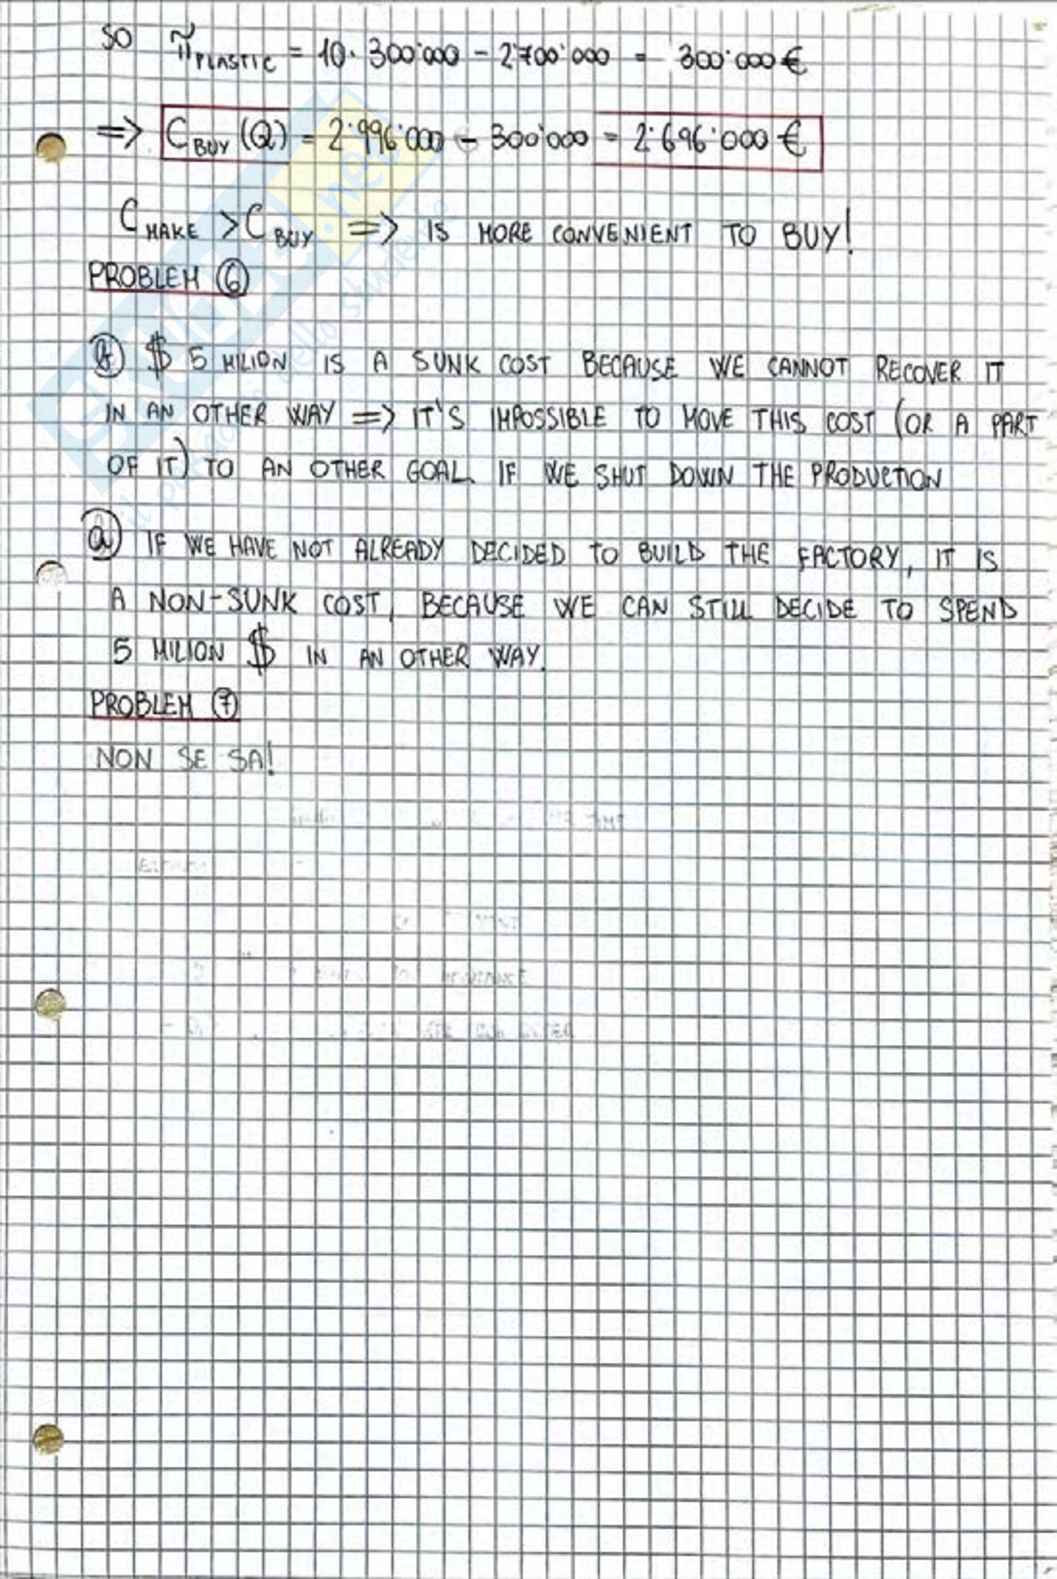 SO π̃PLASTIC = 10· 300'000 - 2'700'000 = 300'000 €
=> CBUY (Q) = 2'996'000 - 300'000 = 2'696'000 €
CMAKE > CBUY => IS MORE CONVENIENT TO BUY!
PROBLEM ⑥
ⓑ $ 5 MILION IS A SUNK COST BECAUSE WE CANNOT RECOVER IT
IN AN OTHER WAY => IT'S IMPOSSIBLE TO MOVE THIS COST (OR A PART
OF IT) TO AN OTHER GOAL IF WE SHUT DOWN THE PRODUCTION
ⓐ IF WE HAVE NOT ALREADY DECIDED TO BUILD THE FACTORY, IT IS
A NON-SUNK COST, BECAUSE WE CAN STILL DECIDE TO SPEND
5 MILION $ IN AN OTHER WAY.
PROBLEM ⑦
NON SE SA!